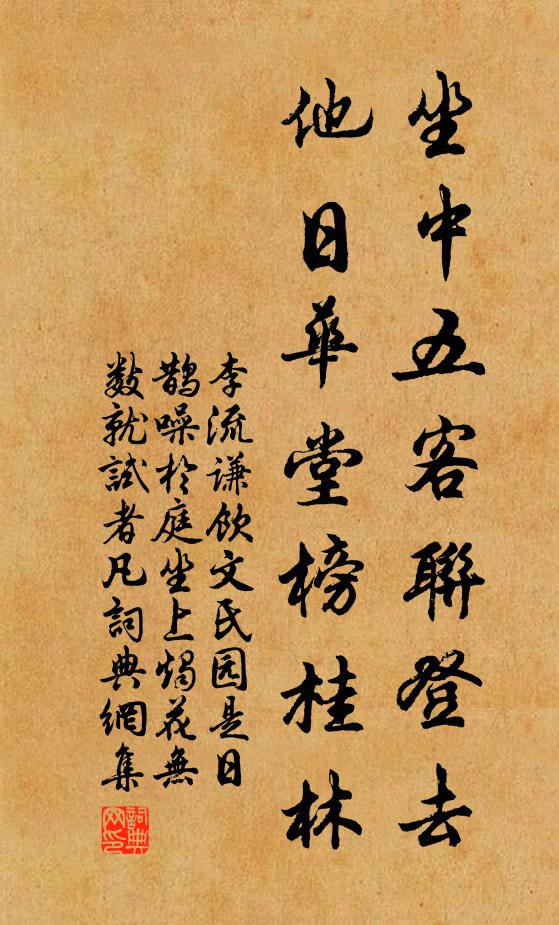 坐中五客聯登去
他日華堂榜桂林
李流谦飲文氏园是日
鵲噪於庭坐上燭花無
數就試者凡詞典網集
詞典網印